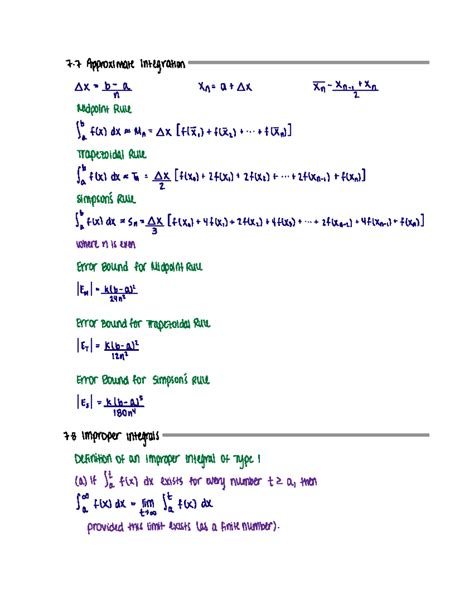 7.7 Approximate Integration
Δx = (b - a)/n    xₙ = a + Δx    x̄ₙ = (xₙ₋₁ + xₙ)/2
Midpoint Rule
∫ₐᵇ f(x) dx ≈ Mₙ = Δx [f(x̄₁) + f(x̄₂) + ··· + f(x̄ₙ)]
Trapezoidal Rule
∫ₐᵇ f(x) dx ≈ Tₙ = Δx/2 [f(x₀) + 2f(x₁) + 2f(x₂) + ··· + 2f(xₙ₋₁) + f(xₙ)]
Simpson's Rule
∫ₐᵇ f(x) dx ≈ Sₙ = Δx/3 [f(x₀) + 4f(x₁) + 2f(x₂) + 4f(x₃) + ··· + 2f(xₙ₋₂) + 4f(xₙ₋₁) + f(xₙ)]
where n is even
Error Bound for Midpoint Rule
|E_M| = k(b-a)²/24n²
Error Bound for Trapezoidal Rule
|E_T| = k(b-a)²/12n²
Error Bound for Simpson's Rule
|E_S| = k(b-a)⁵/180n⁴
7.8 Improper Integrals
Definition of an Improper Integral of Type 1
(a) If ∫ₐᵗ f(x) dx exists for every number t ≥ a, then
∫ₐ^∞ f(x) dx = lim t→∞ ∫ₐᵗ f(x) dx
provided this limit exists (as a finite number).